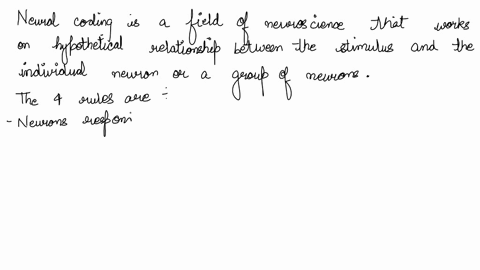 Neural coding is a field of neuroscience that works
on hypothetical relationship between the stimulus and the
individual neuron or a group of neurons.
The 4 rules are :
- Neurons respon